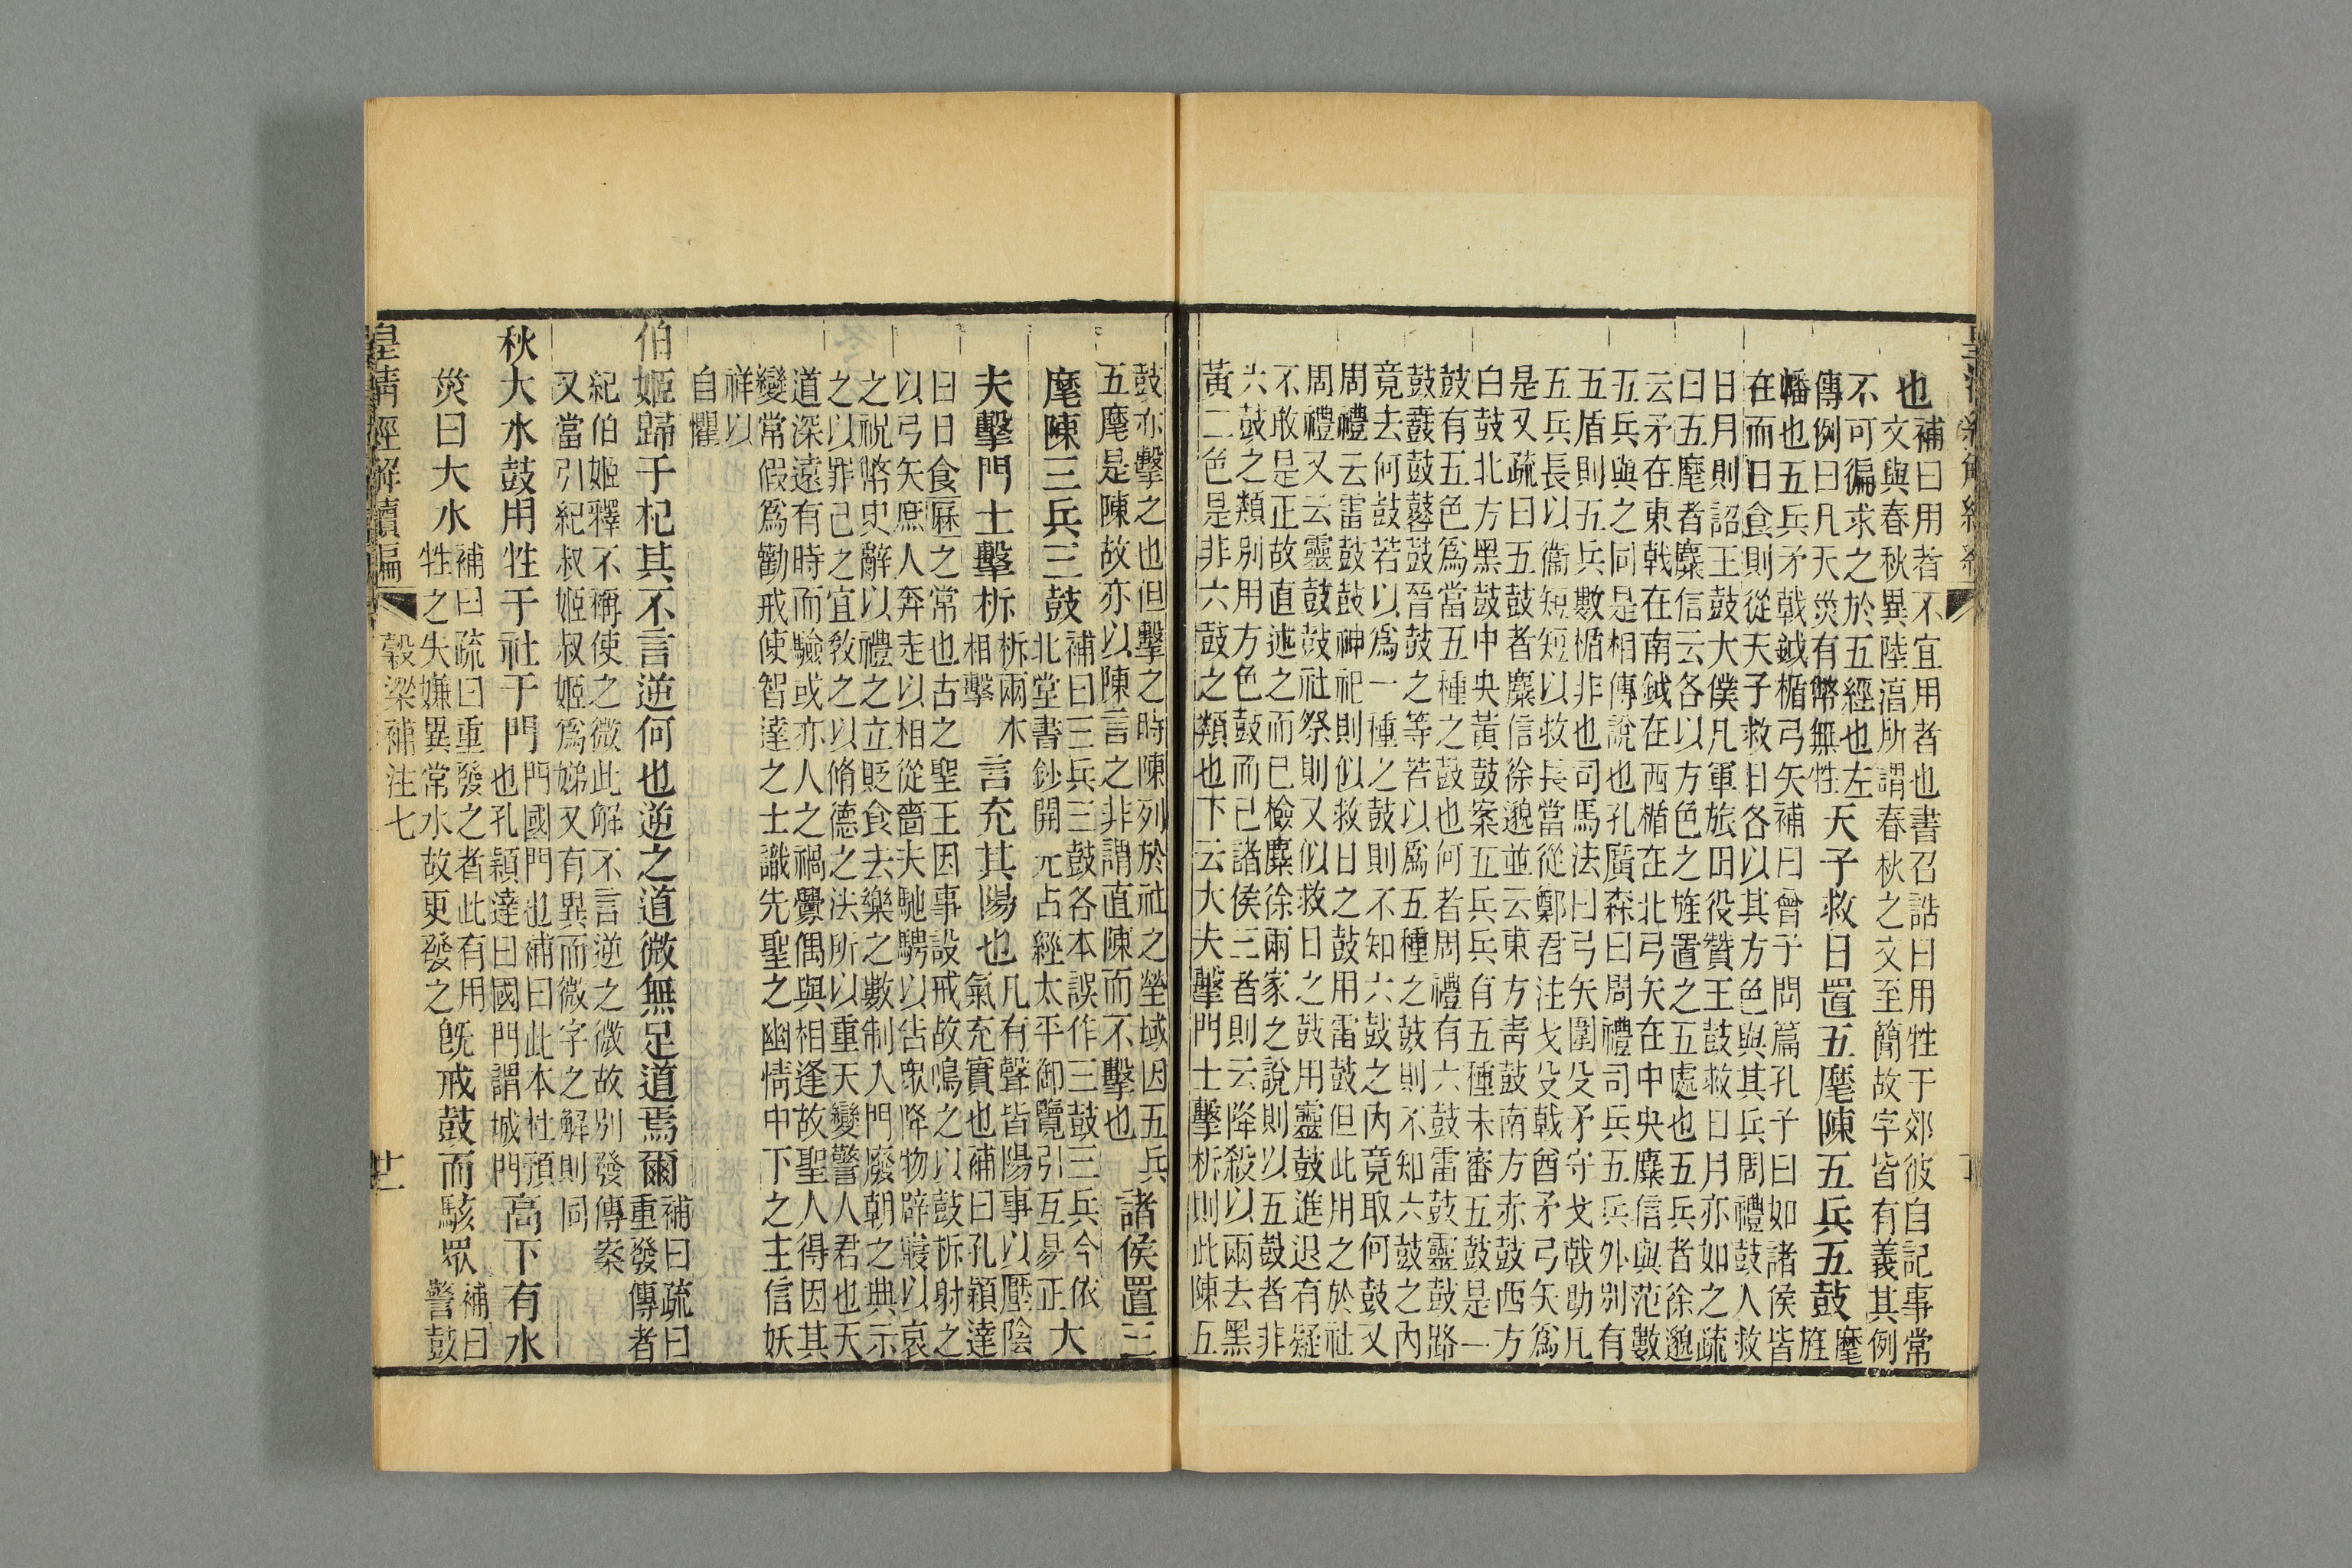 也
補曰用者不宜用者也書召誥曰用牲于郊彼自記事常
文與春秋異陸淳所謂春秋之文至簡故字皆有義其例
不可徧求之於五經也左
傳例曰凡天災有幣無牲
天子救日置五麾陳五兵五鼓
麾旌
幡也五兵矛戟鉞楯弓矢補曰曾子問篇孔子曰如諸侯皆
在而日食則從天子救日各以其方色與其兵周禮鼓人救
日月則詔王鼓大僕凡軍旅田役贊王鼓救日月亦如之疏
曰五麾者麋信云各以方色之旌置之五處也五兵者徐邈
云矛在東戟在南鉞在西楯在北弓矢在中央麋信與范數
五兵與之同是相傳說也孔廣森曰周禮司兵五兵外別有
五盾則五兵數楯非也司馬法曰弓矢圍殳矛守戈戟助凡
五兵長以衞短短以救長當從鄭君注戈殳戟酋矛弓矢爲
是又疏曰五鼓者麋信徐邈並云東方青鼓南方赤鼓西方
白鼓北方黑鼓中央黃鼓案五兵兵有五種未審五鼓是一
鼓有五色爲當五種之鼓也何者周禮有六鼓雷鼓靈鼓路
鼓鼖鼓鼛鼓晉鼓之等若以爲五種之鼓則不知六鼓之內
竟去何鼓若以爲一種之鼓則不知六鼓之內竟取何鼓又
周禮云雷鼓鼓神祀則似救日之鼓用雷鼓但此用之於社
周禮又云靈鼓鼓社祭則又似救日之鼓用靈鼓進退有疑
不敢是正故直述之而已檢麋徐兩家之說則以五鼓者非
六鼓之類別用方色鼓而已諸侯三者則云降殺以兩去黑
黃二色是非六鼓之類也下云大夫擊門士擊柝則此陳五
鼓亦擊之也但擊之時陳列於社之塋域因五兵
五麾是陳故亦以陳言之非謂直陳而不擊也
諸侯置三
麾陳三兵三鼓
補曰三兵三鼓各本誤作三鼓三兵今依
北堂書鈔開元占經太平御覽引互易正
大
夫擊門士擊柝
柝兩木
相擊
言充其陽也
凡有聲皆陽事以壓陰
氣充實也補曰孔穎達
曰日食厤之常也古之聖王因事設戒故鳴之以鼓柝射之
以弓矢庶人奔走以相從嗇夫馳騁以告眾降物辟寢以哀
之祝幣史辭以禮之立貶食去樂之數制入門廢朝之典示
之以罪己之宜敎之以脩德之法所以重天變警人君也天
道深遠有時而驗或亦人之禍釁偶與相逢故聖人得因其
變常假爲勸戒使智達之士識先聖之幽情中下之主信妖
祥以
自懼
伯姬歸于杞其不言逆何也逆之道微無足道焉爾
補曰疏曰
重發傳者
紀伯姬釋不稱使之微此解不言逆之微故別發傳案
又當引紀叔姬叔姬爲娣又有異而微字之解則同
秋大水鼓用牲于社于門
門國門也補曰此本牲預
也孔穎達曰國門謂城門
高下有水
災曰大水
補曰疏曰重發之者此有用
牲之失嫌異常水故更發之
旣戒鼓而駭眾
補曰
警鼓
皇清經解續編
穀梁補注七